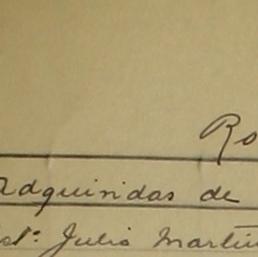 Ro
Adquiridas de
st: Julio Martin